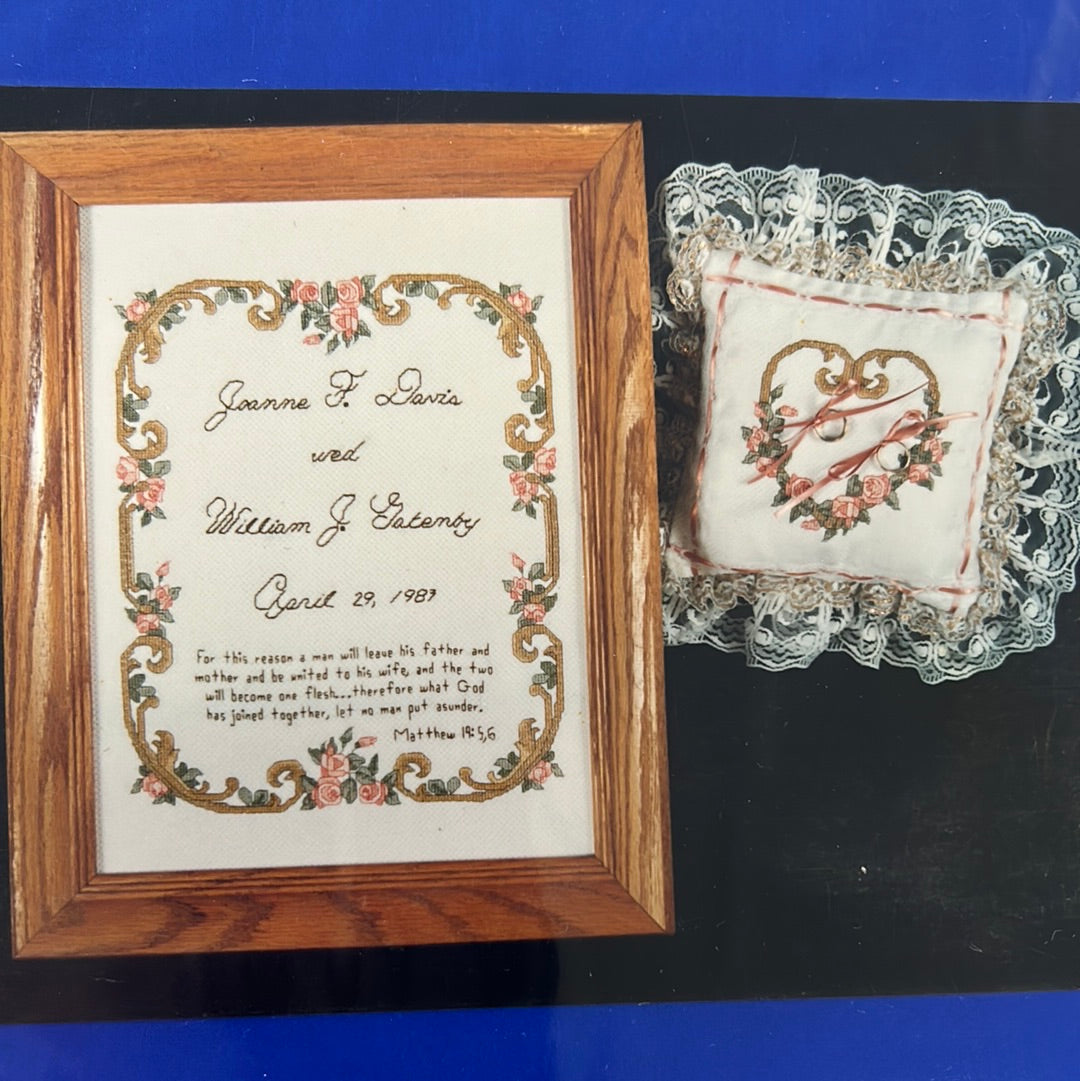 Joanne F. Davis
wed
William J. Gatenby
April 29, 1983
For this reason a man will leave his father and
mother and be united to his wife, and the two
will become one flesh...therefore what God
has joined together, let no man put asunder.
Matthew 19:5,6